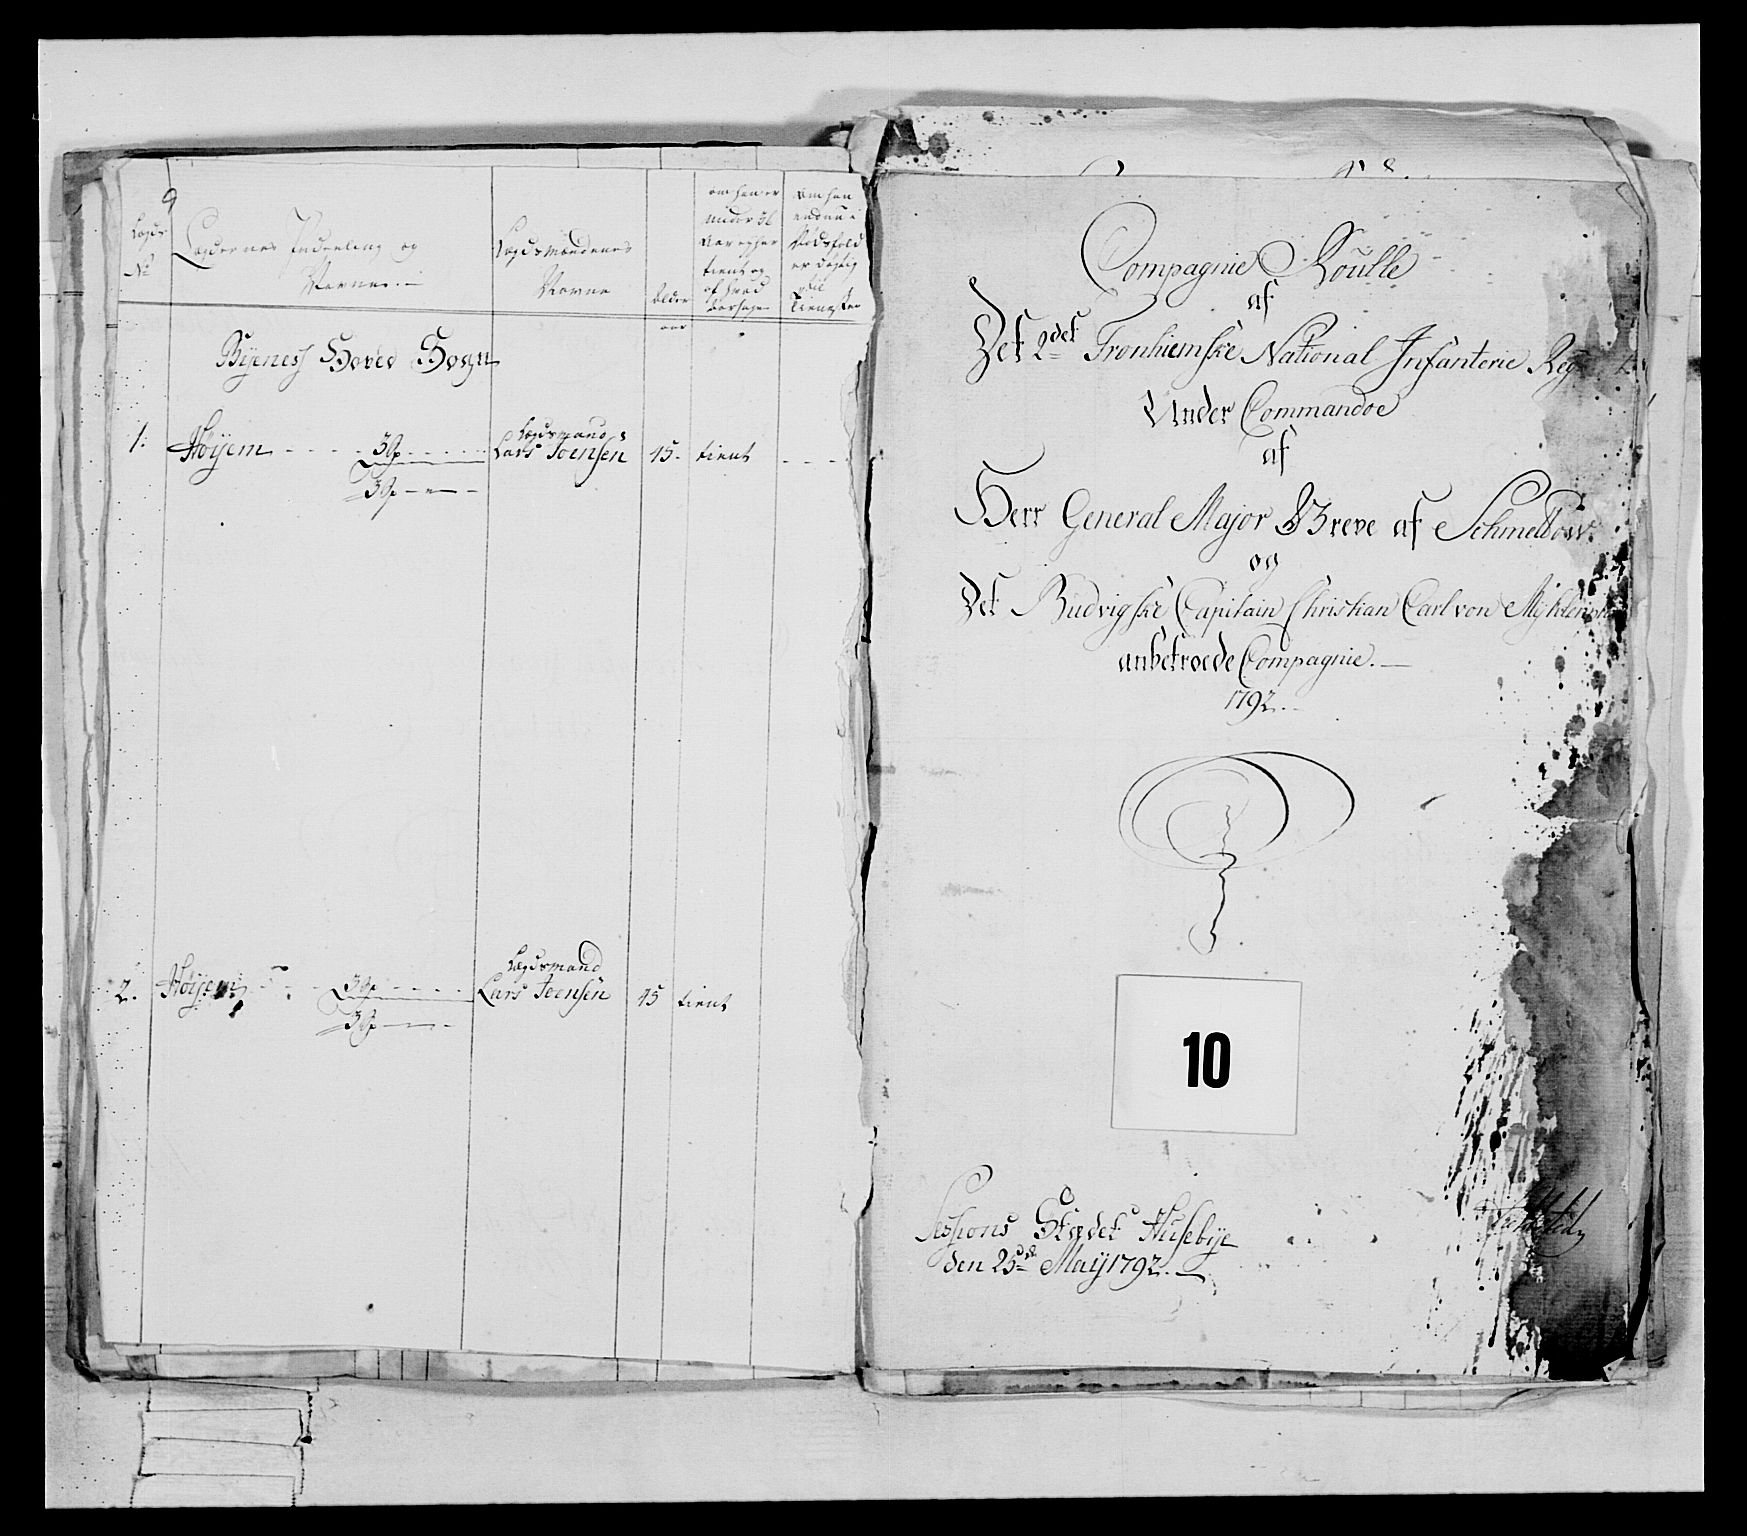 9
Lægds
No
Lægdernes Inddeeling og
Navne. —
Lægdsmændenes
Navne
Alder
aar
om han er
under 36
Aar og har
tient og
af hvad
Aarsage
Om han
endnu i
Nødsfald
er dygtig
til
Tienesten
Bynes Hoved Sogn
1. Høyem 3
Lægdsmand
Lars Joensen 45. tient
3
2. Høyem 3
Lægdsmand
Lars Joensen 45 tient
3
Compagnie Roulle
af
Det 2det Tronhiemske National Infanterie Reg
Under Commandoe
af
Herr General Major Greve af Schmettow
og
Det Budvigske Capitain Christian Carl von
anbetroede Compagnie. —
1792.
10
Sessions Stædet Husebye
den 25de Maij 1792. —